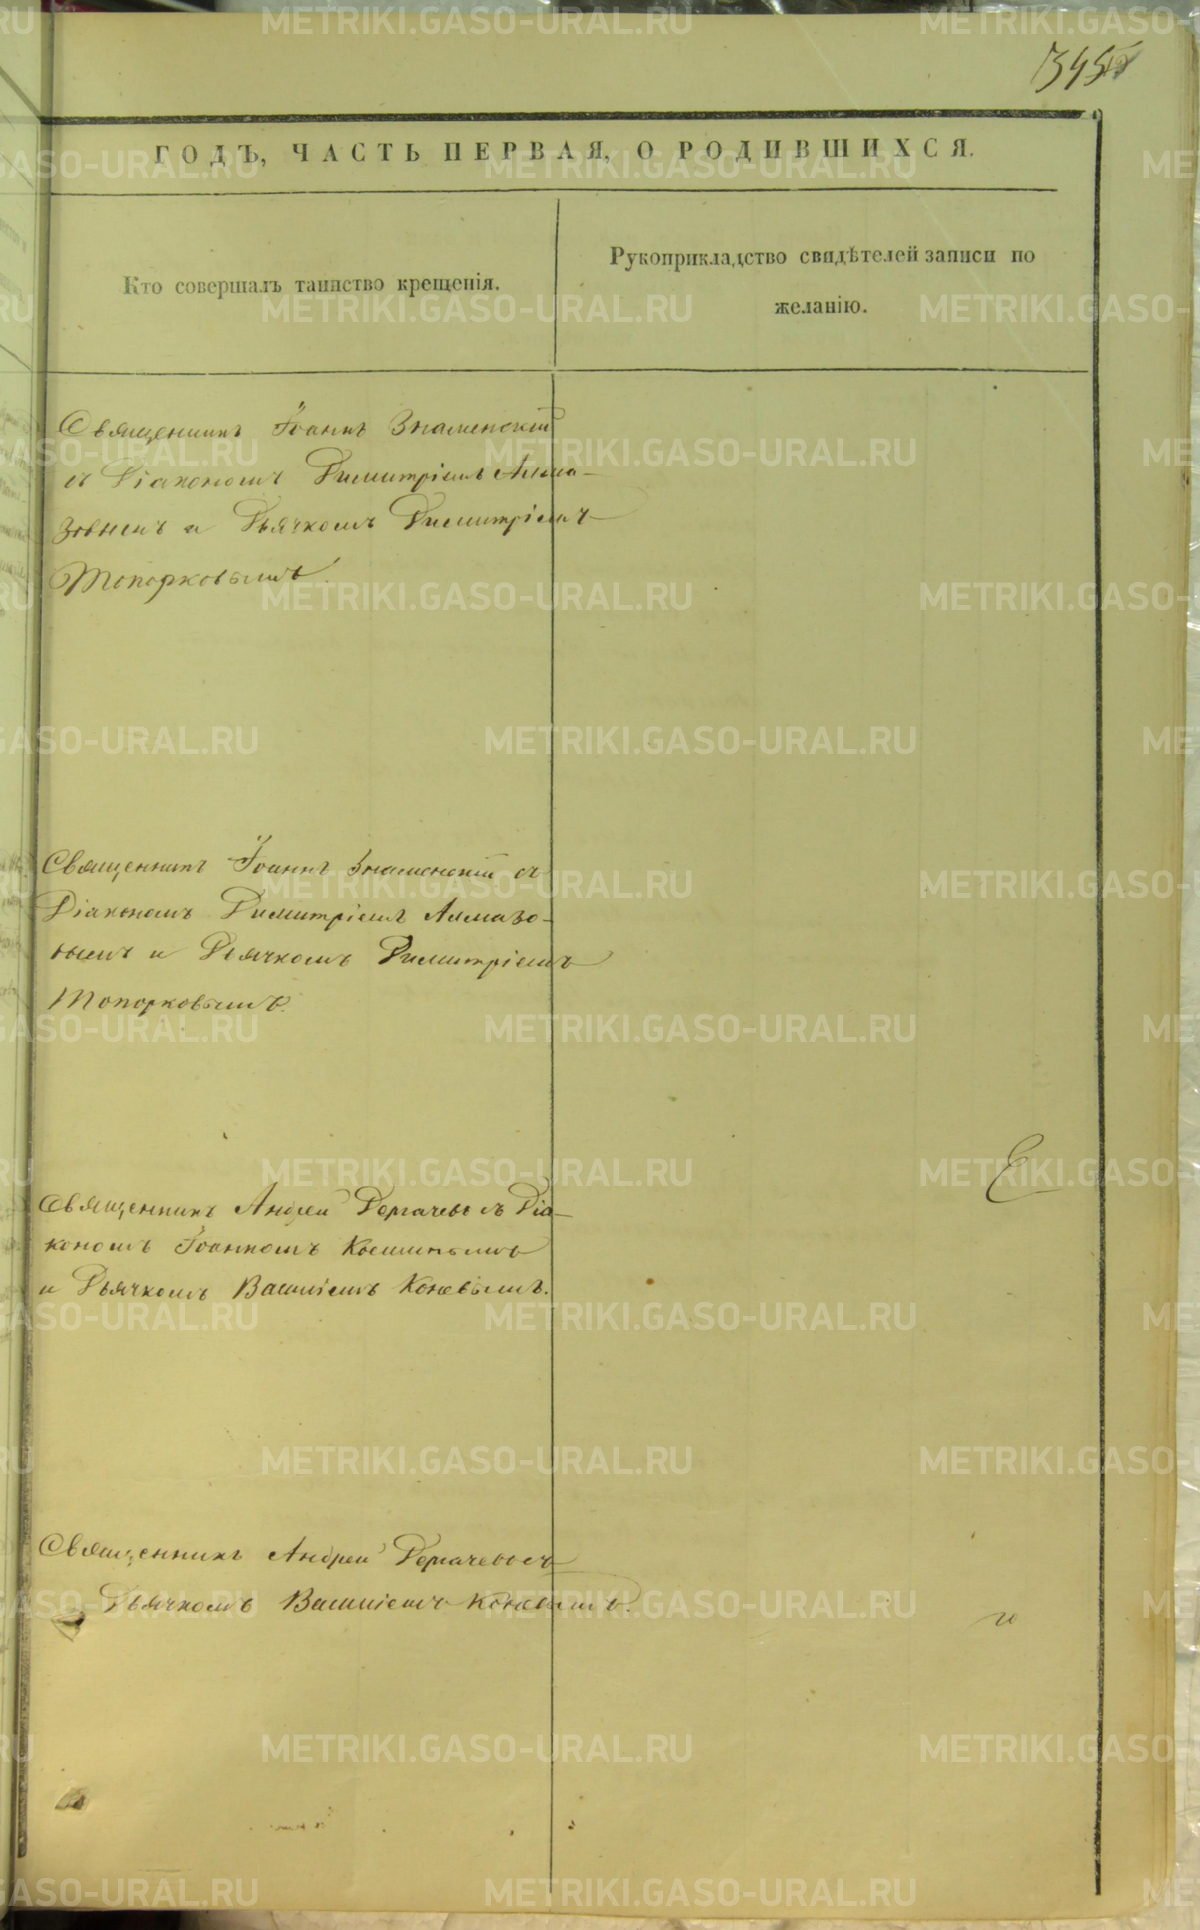 345
ГОДЪ, ЧАСТЬ ПЕРВАЯ, О РОДИВШИХСЯ.
Кто совершалъ таинство крещенія.
Рукоприкладство свидѣтелей записи по
желанію.
Священникъ Іоаннъ Знаменскій
съ Діакономъ Димитріемъ Алма-
зовымъ и Дьячкомъ Димитріемъ
Топорковымъ.
Священникъ Іоаннъ Знаменскій съ
Діакономъ Димитріемъ Алмазо-
вымъ и Дьячкомъ Димитріемъ
Топорковымъ.
Священникъ Андрей Дергачевъ съ Діа-
кономъ Іоанномъ
и Дьячкомъ Василіемъ Коневымъ.
Священникъ Андрей Дергачевъ съ
Дьячкомъ Василіемъ Коневымъ.
METRIKI.GASO-URAL.RU